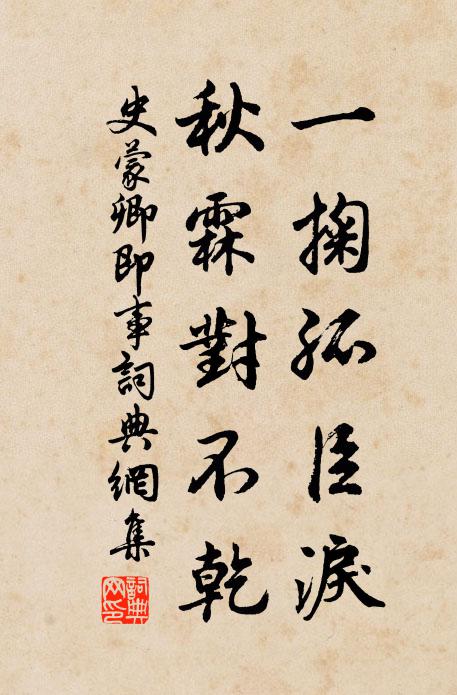 一掬孤臣淚
秋霖對不乾
史蒙卿即事詞典網集
詞典網印